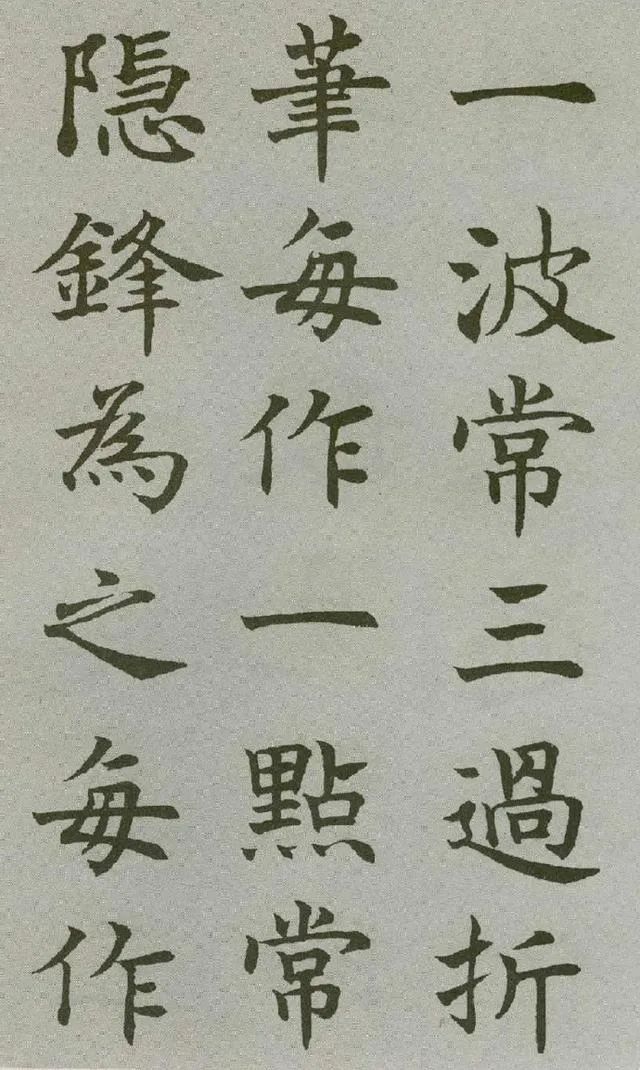 一波常三過折
筆每作一點常
隱鋒為之每作